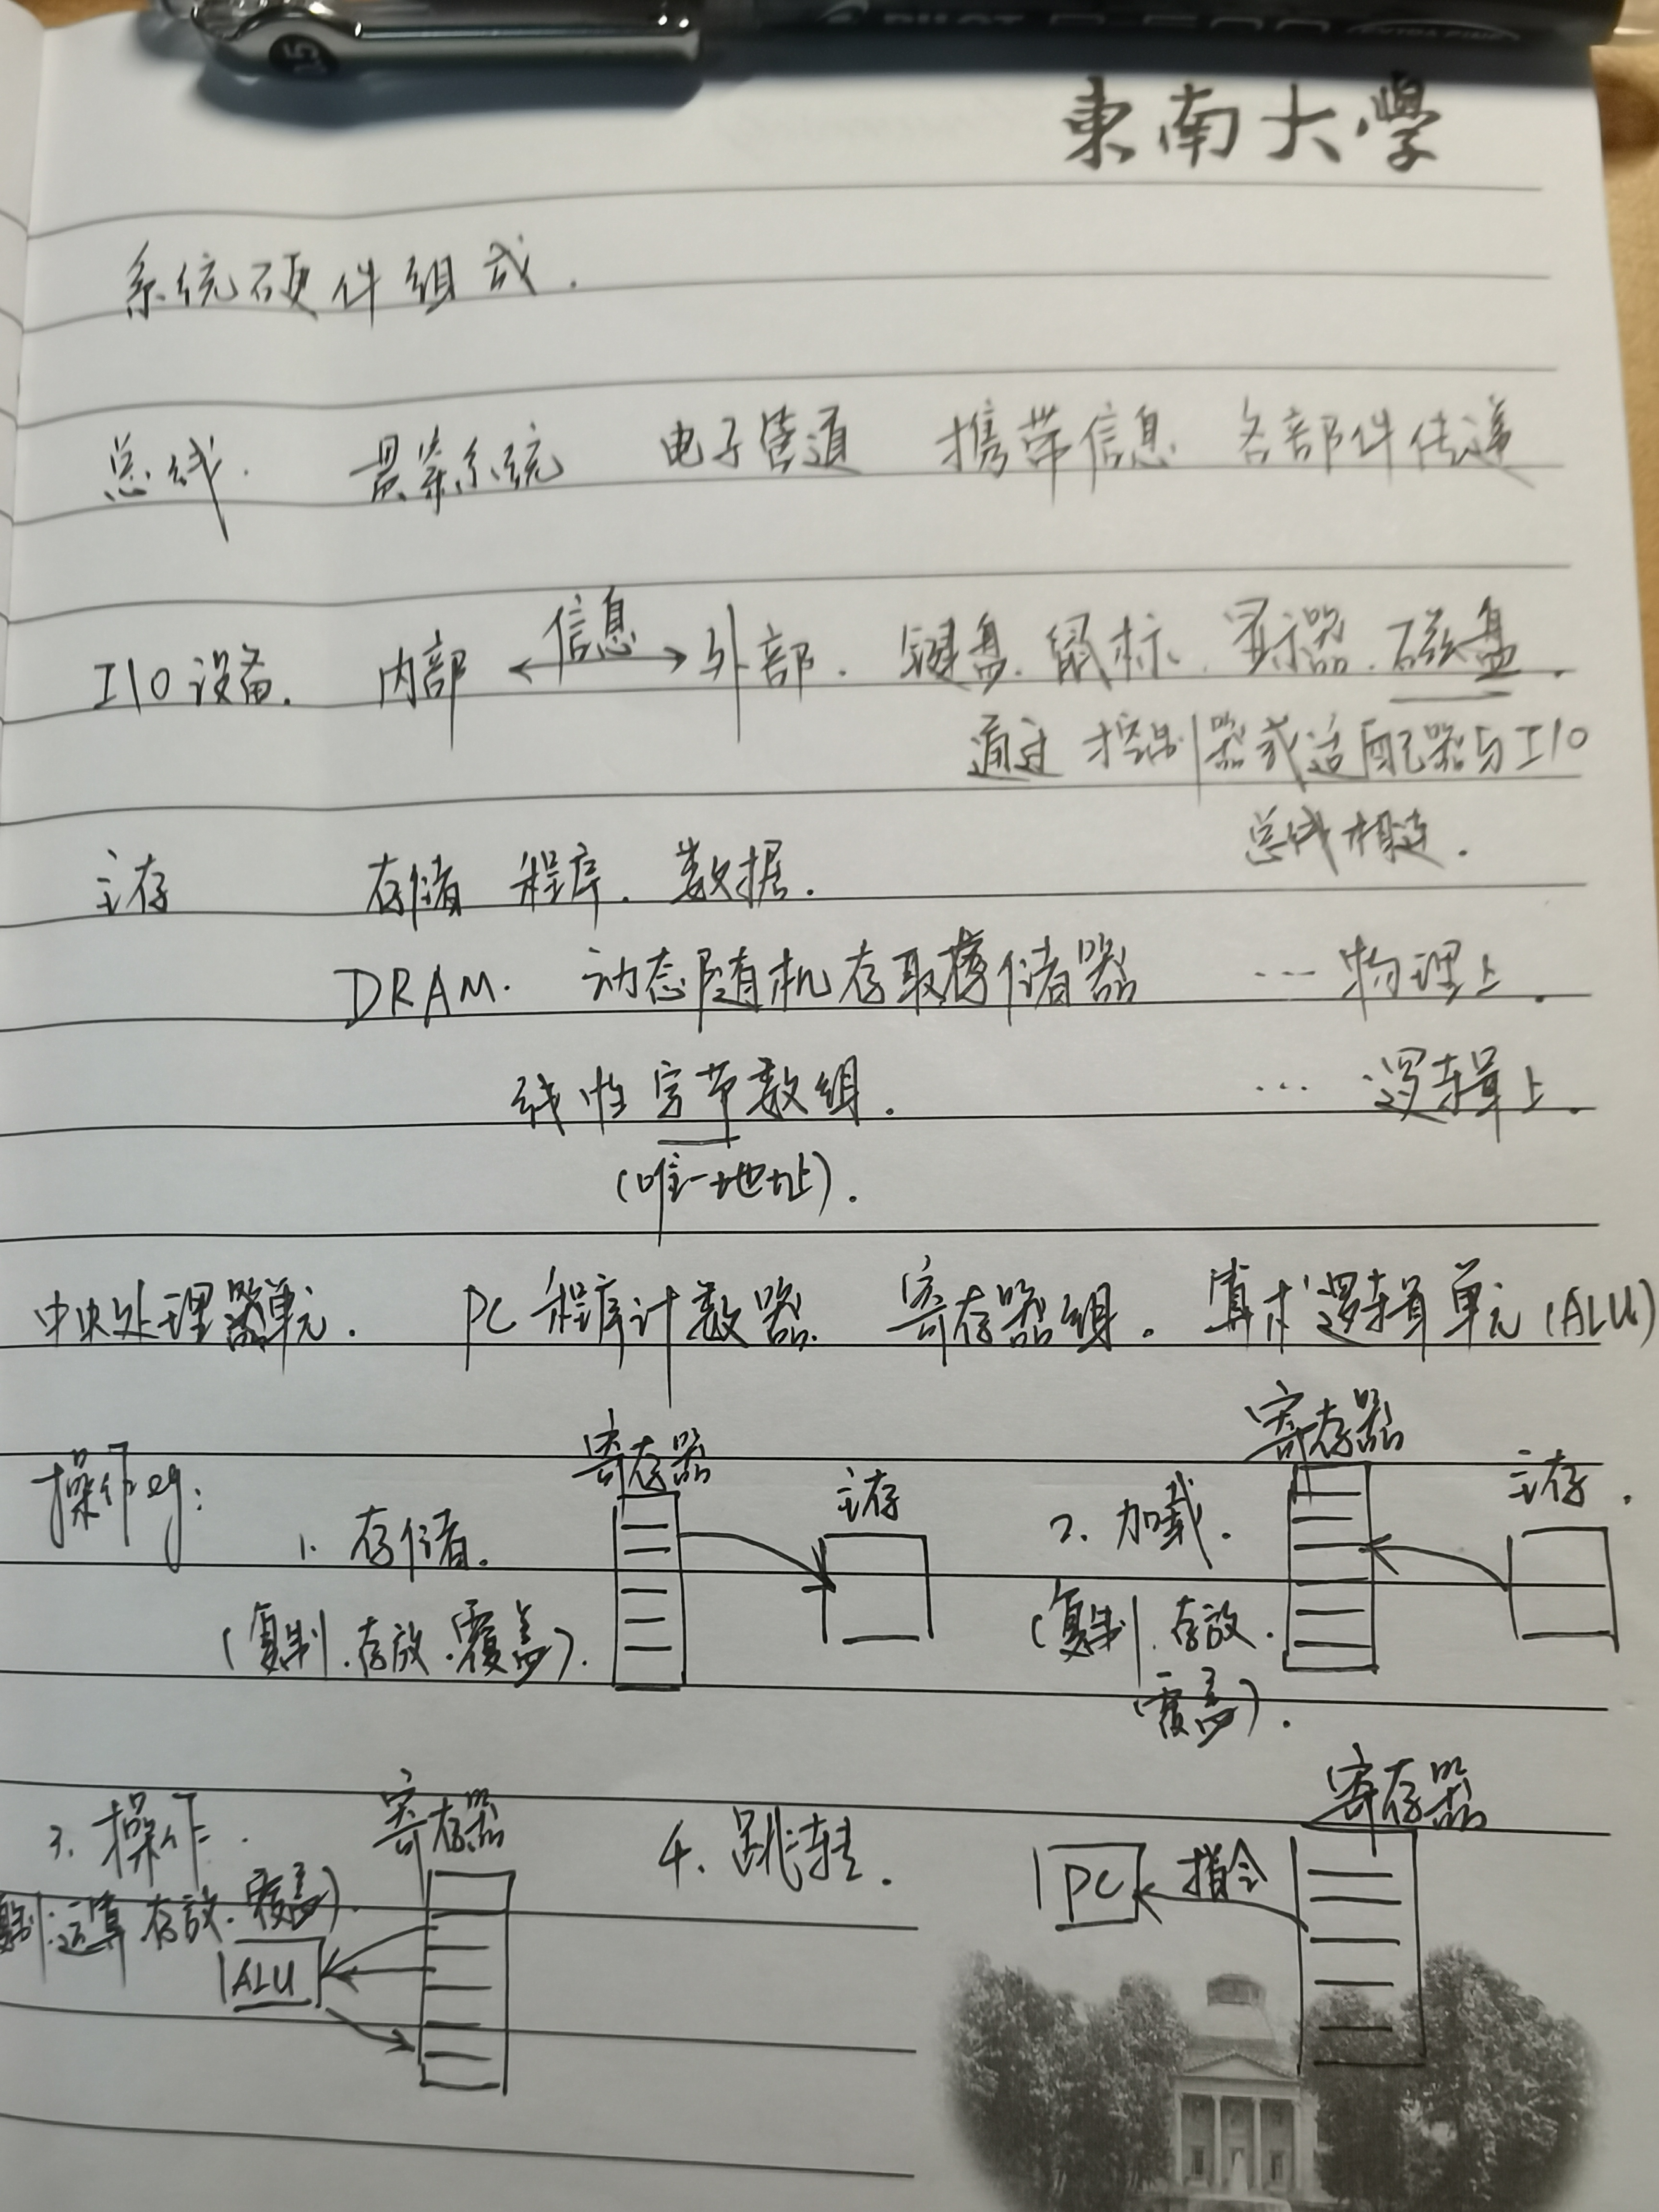 東南大學
系统硬件组成.
总线. 贯穿系统 电子管道 携带信息 各部件传递
信息
I/O 设备. 内部 ←→ 外部. 键盘. 鼠标. 显示器. 磁盘.
通过 控制器或适配器与I/O
总线相连.
主存 存储 程序. 数据.
DRAM. 动态随机存取存储器 ... 物理上.
线性字节数组. ... 逻辑上.
(唯一地址).
中央处理器单元. PC 程序计数器. 寄存器组. 算术逻辑单元 (ALU)
操作eg: 寄存器 主存 寄存器 主存.
1. 存储. 2. 加载.
(复制.存放.覆盖). (复制.存放.
覆盖).
3. 操作. 寄存器 4. 跳转. 寄存器
PC 指令
复制.运算 存放.覆盖).
ALU